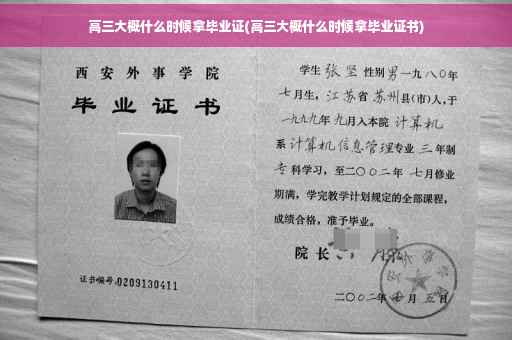 高三大概什么时候拿毕业证(高三大概什么时候拿毕业证书)
西安外事学院
毕业证书
证书编号:0209130411
学生 张坚 性别 男 一九八〇年
七月生，江苏省 苏州 县(市)人，于
一九九九年 九月入本院 计算机
系 计算机信息管理 专业 三 年制
专科学习，至二〇〇二年 七月修业
期满，学完教学计划规定的全部课程，
成绩合格，准予毕业。
院长
二〇〇二年 月 五 日